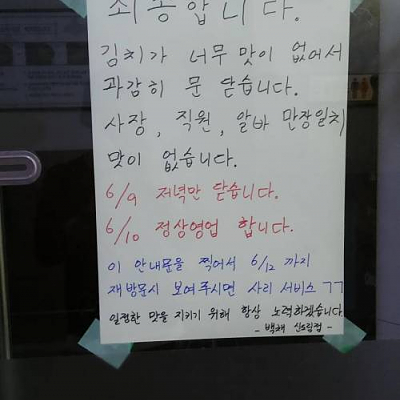 죄송합니다.
김치가 너무 맛이 없어서
과감히 문 닫습니다.
사장, 직원, 알바 만장일치
맛이 없습니다.
6/9 저녁만 닫습니다.
6/10 정상영업 합니다.
이 안내문을 찍어서 6/12 까지
재방문시 보여주시면 사리 서비스 ㄱㄱ
일정한 맛을 지키기 위해 항상 노력하겠습니다.
- 백채 신림점 -